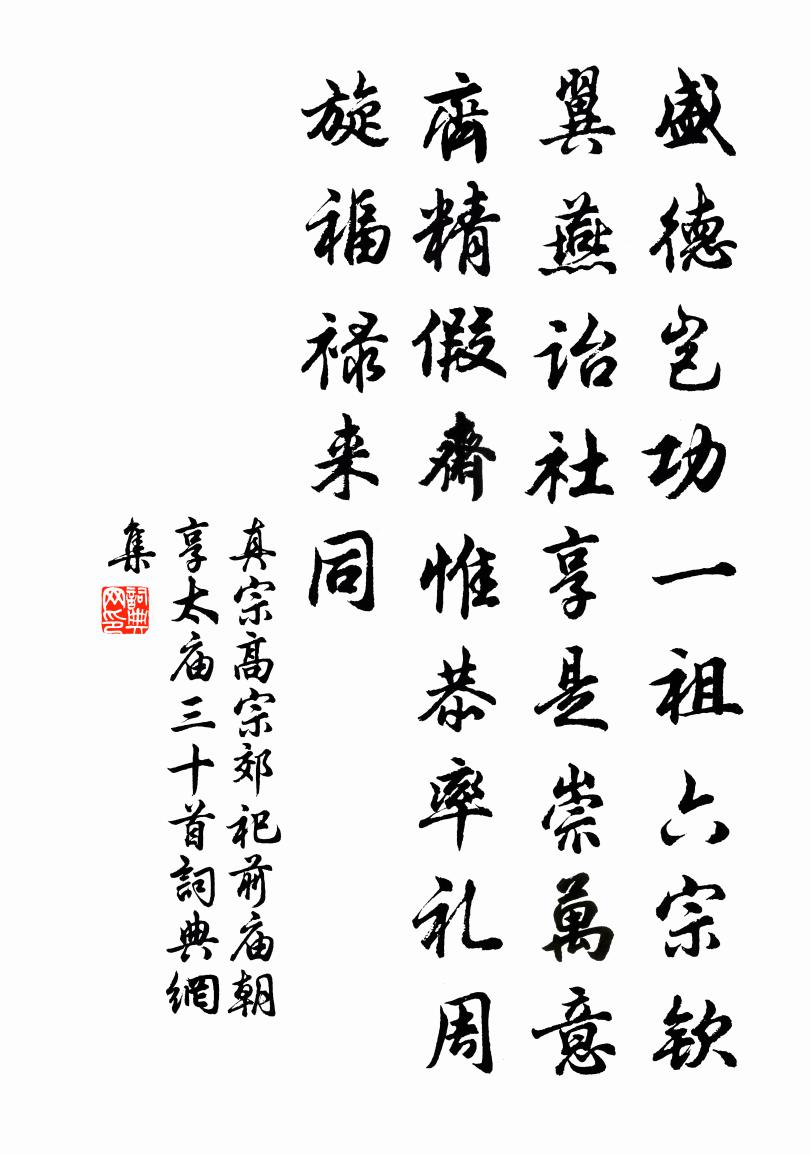 盛德岂功一祖六宗钦
翼燕诒社享是崇萬意
齊精假齋惟恭率礼周
旋福禄来同
真宗高宗郊祀前庙朝
享太庙三十首詞典網
集
詞典网印